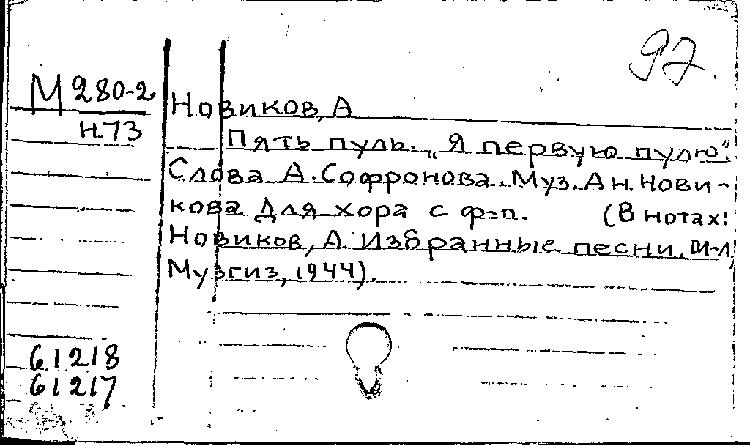 97.
М 280-2
Н.73
Новиков, А
Пять пуль. „Я первую пулю".
Слова А. Софронова. Муз. Ан. Нови-
кова Для хора с ф-п. (В нотах:
Новиков, А. Избранные песни. М-Л,
Музгиз, 1944).
61218
61217